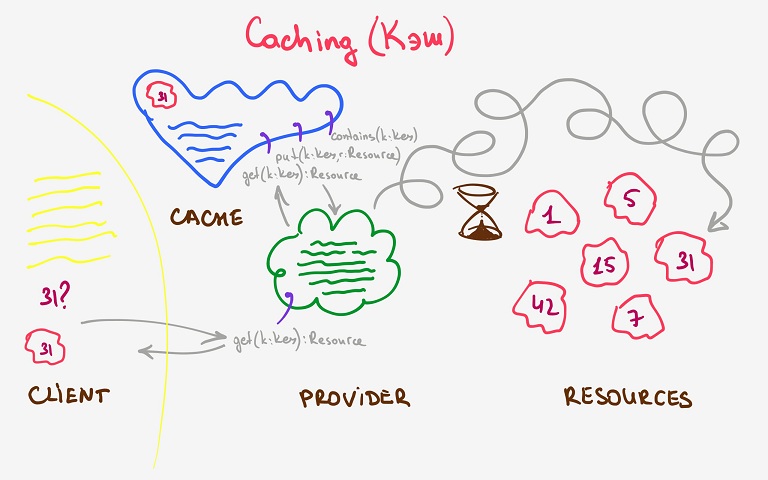 Caching (Кэш)
31
contains(k:Key)
put(k:Key, r:Resource)
get(k:Key):Resource
CACHE
1
5
15
31
42
7
31?
31
get(k:Key):Resource
CLIENT
PROVIDER
RESOURCES